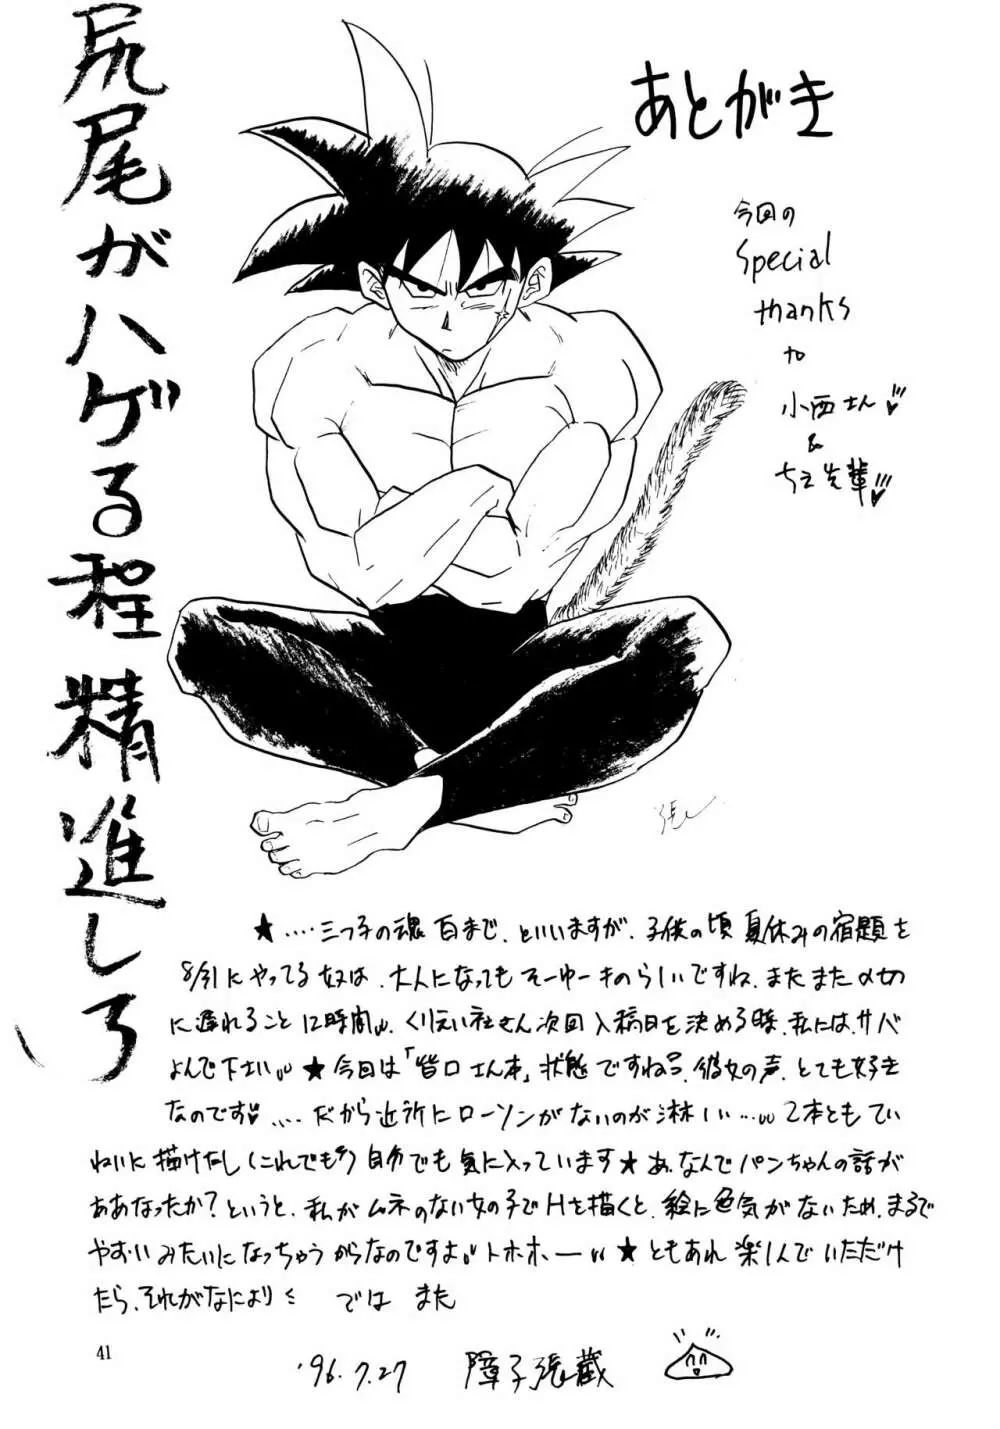 あとがき
今回の
Special
thanks
to
小西さん
&
ちえ先輩
尻尾がハゲる程 精進しろ
★‥‥三つ子の魂百まで、といいますが、子供の頃夏休みの宿題を
8/31にやってる奴は、大人になってもそーゆーものらしいですね、またまた〆切
に遅れること12時間、くりえい社さん次回入稿日を決める時、私にはサバ
よんで下さい ★今回は「皆口さん本」状態ですね、彼女の声、とても好き
なのです‥‥だから近所にローソンがないのが淋しい… 2本ともてい
ねいに描けたし(これでも)自分でも気に入っています★あ、なんでパンちゃんの話が
ああなったか?というと、私がムネのない女の子でHを描くと、絵に色気がないため、まるで
やおいみたいになっちゃうからなのですよ トホホー ★ともあれ楽しんでいただけ
たら、それがなにより では また
41
'96.7.27 障子張蔵